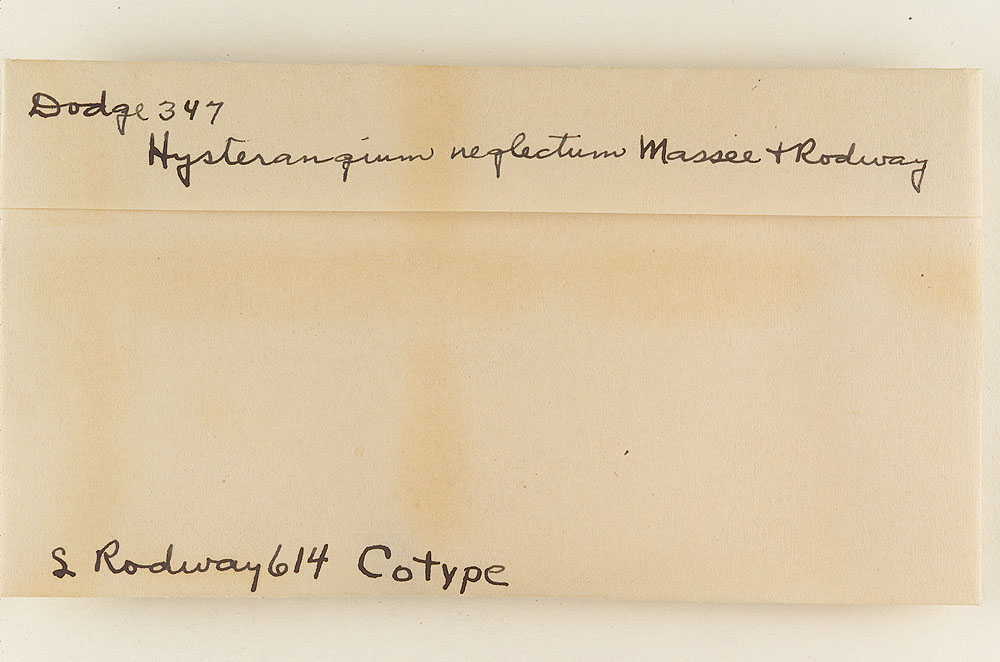 Dodge 347
Hysterangium neglectum Massee + Rodway
L Rodway 614 Cotype